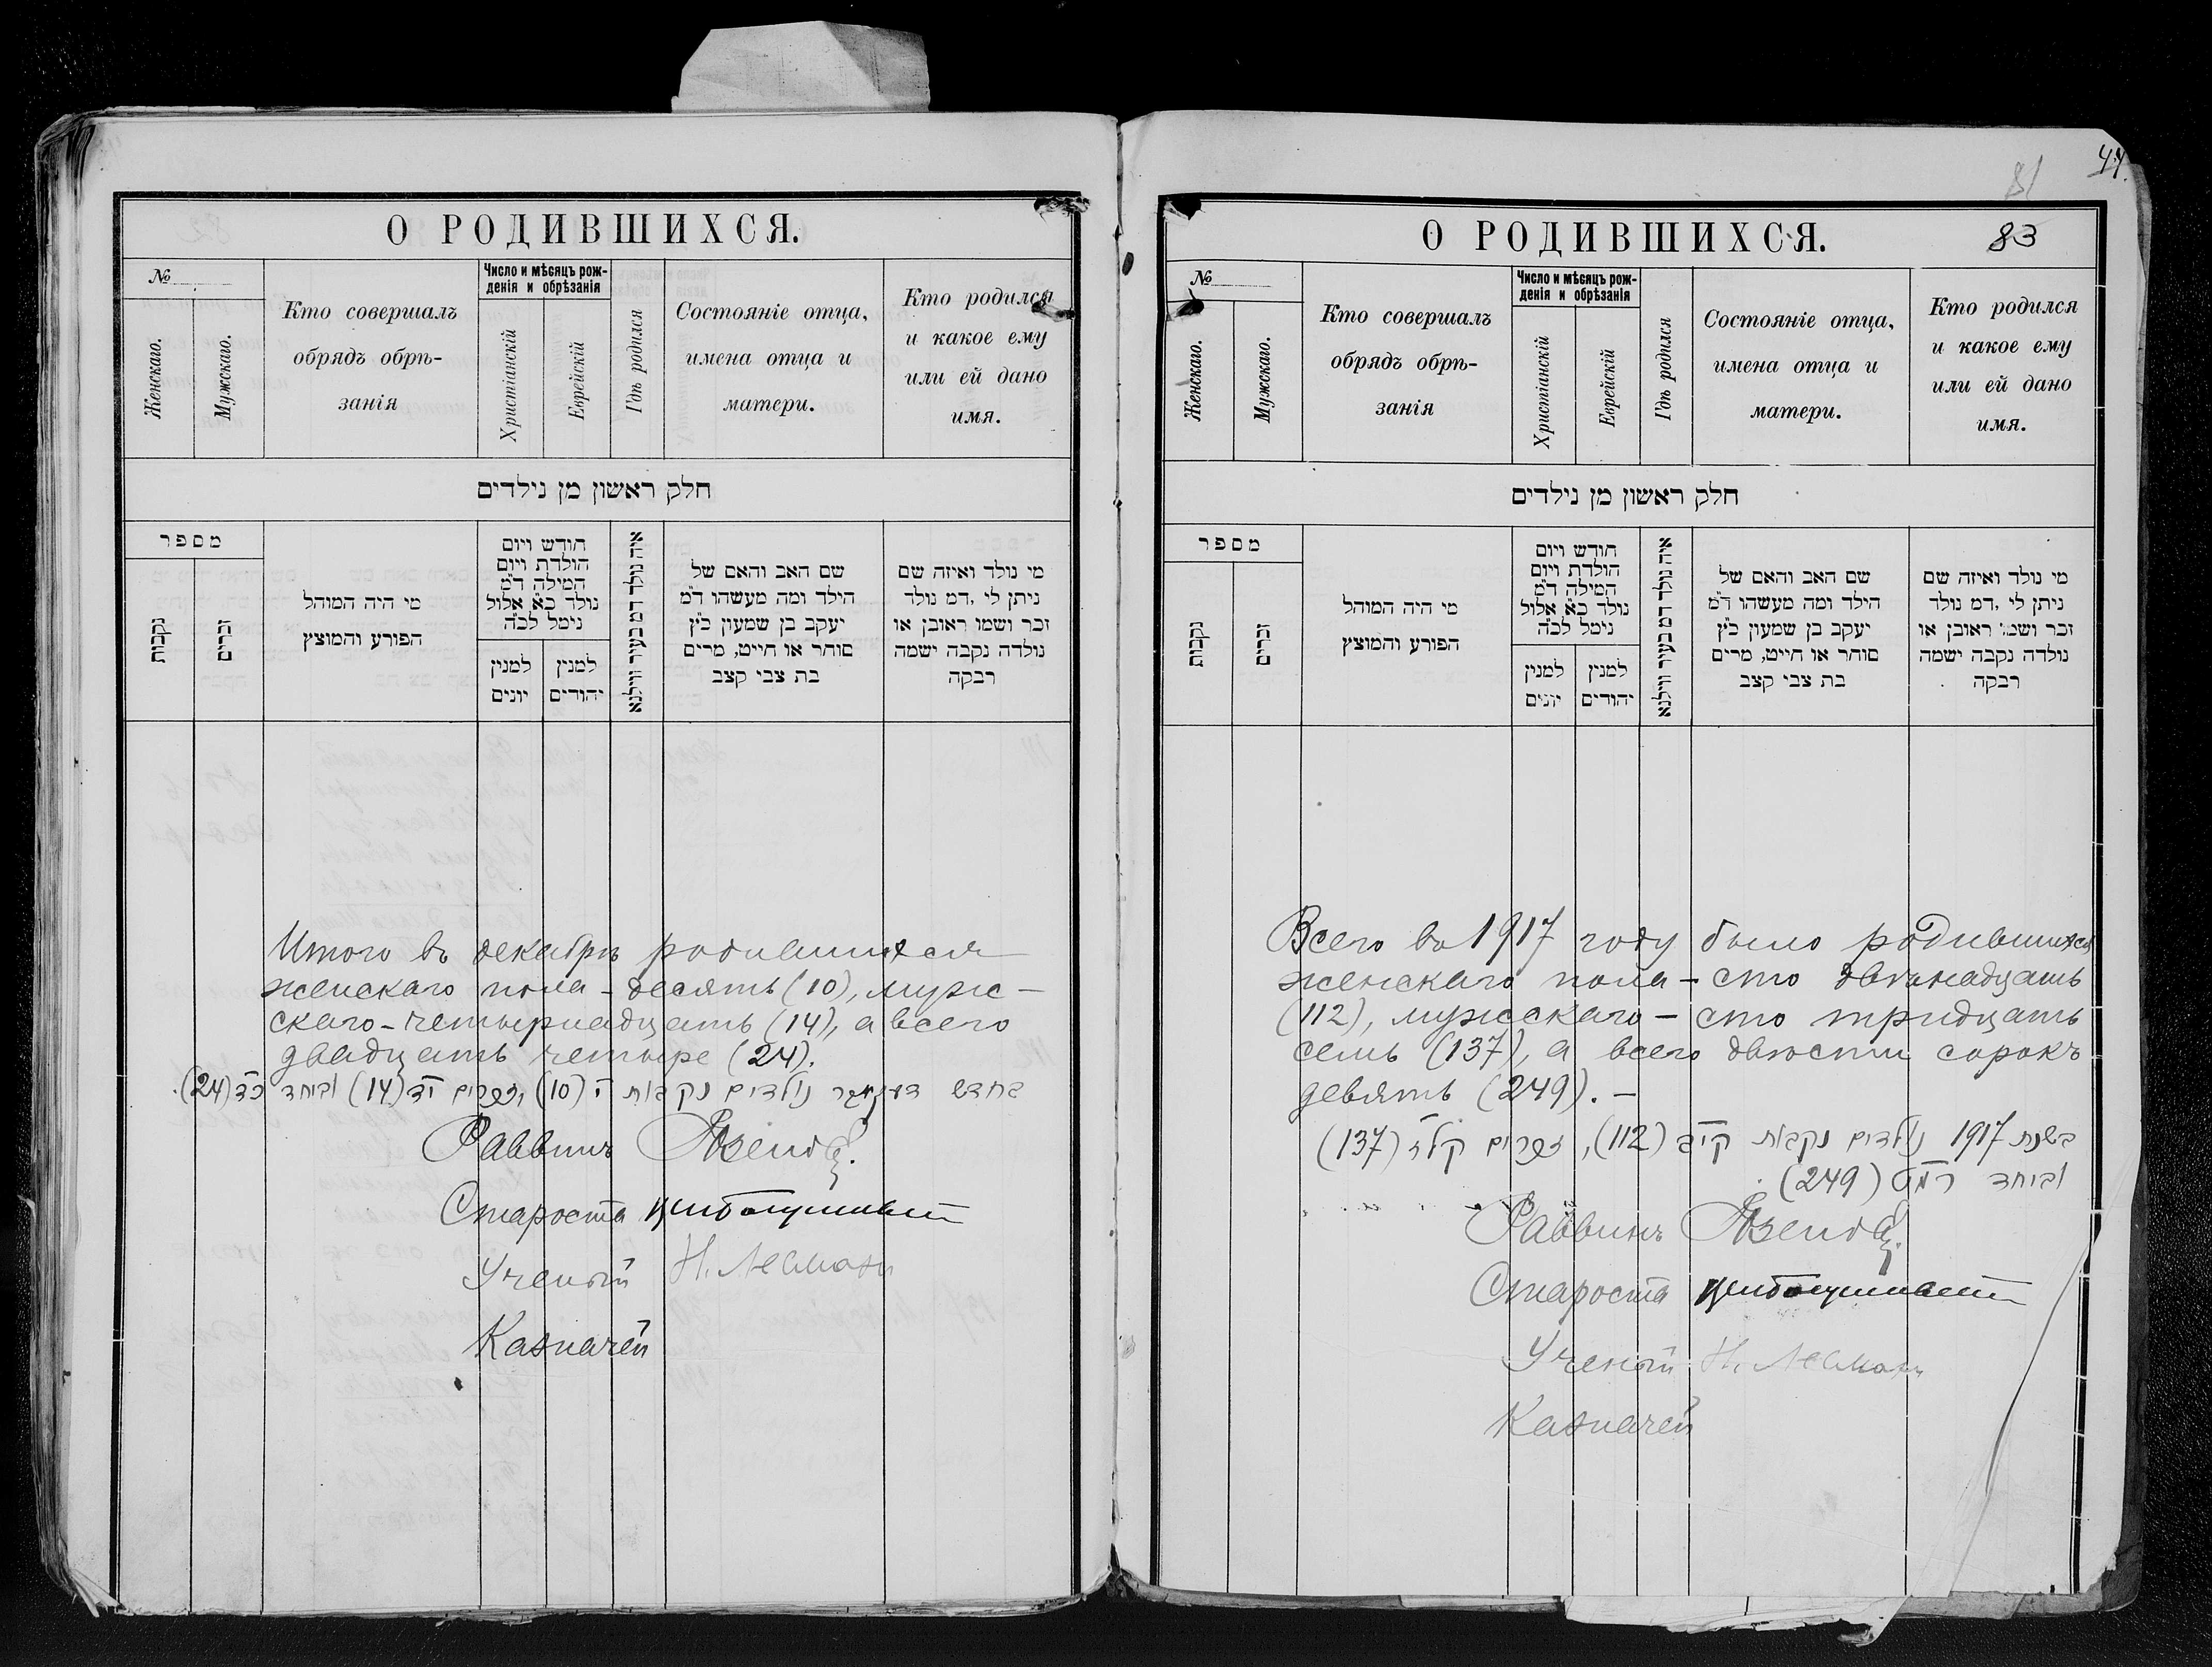 О РОДИВШИХСЯ.
№
Женскаго.
Мужскаго.
Кто совершалъ
обрядъ обрѣ-
занія
Число и мѣсяцъ рож-
денія и обрѣзанія
Христіанскій
Еврейскій
Гдѣ родился
Состояніе отца,
имена отца и
матери.
Кто родился
и какое ему
или ей дано
имя.
חלק ראשון מן נילדים
מספר
נקבות
זכרים
מי היה המוהל
הפורע והמוצץ
חודש ויום
הולדת ויום
המילה ד״מ
נולד כ״א אלול
נימל לכ״ה
למנין
יונים
למנין
יהודים
איה נולד דמ בעיר ווילנא
שם האב והאם של
הילד ומה מעשהו ד״מ
יעקב בן שמעון כ״ץ
סוחר או חייט, מרים
בת צבי קצב
מי נולד ואיזה שם
ניתן לי ,דמ נולד
זכר ושמו ראובן או
נולדה נקבה ישמה
רבקה
Итого въ декабрѣ родившихся
женскаго пола - десять (10), муж-
скаго - четырнадцать (14), а всего
двадцать четыре (24).
בחדש דעקאבר נולדים נקבות י (10), זכרים יד (14) וביחד כד (24).
Раввинъ
Староста
Ученый Н. Лесманъ
Казначей
44.
81
О РОДИВШИХСЯ.
83
№
Женскаго.
Мужсскаго.
Кто совершалъ
обрядъ обрѣ-
занія
Число и мѣсяцъ рож-
денія и обрѣзанія
Христіанскій
Еврейскій
Гдѣ родился
Состояніе отца,
имена отца и
матери.
Кто родился
и какое ему
или ей дано
имя.
חלק ראשון מן נילדים
מספר
נקבות
זכרים
מי היה המוהל
הפורע והמוצץ
חודש ויום
הולדת ויום
המילה ד״מ
נולד כ״א אלול
נימל לכ״ה
למנין
יונים
למנין
יהודים
איה נולד דמ בעיר ווילנא
שם האב והאם של
הילד ומה מעשהו ד״מ
יעקב בן שמעון כ״ץ
סוחר או חייט, מרים
בת צבי קצב
מי נולד ואיזה שם
ניתן לי ,דמ נולד
זכר ושמו ראובן או
נולדה נקבה ישמה
רבקה
Всего въ 1917 году было родившихся
женскаго пола - сто двѣнадцать
(112), мужскаго - сто тридцать
семь (137), а всего двѣсти сорокъ
девять (249). -
בשנת 1917 נולדים נקבות קיב (112), זכרים קלז (137)
וביחד רמט (249).
Раввинъ
Староста
Ученый Н. Лесманъ
Казначей